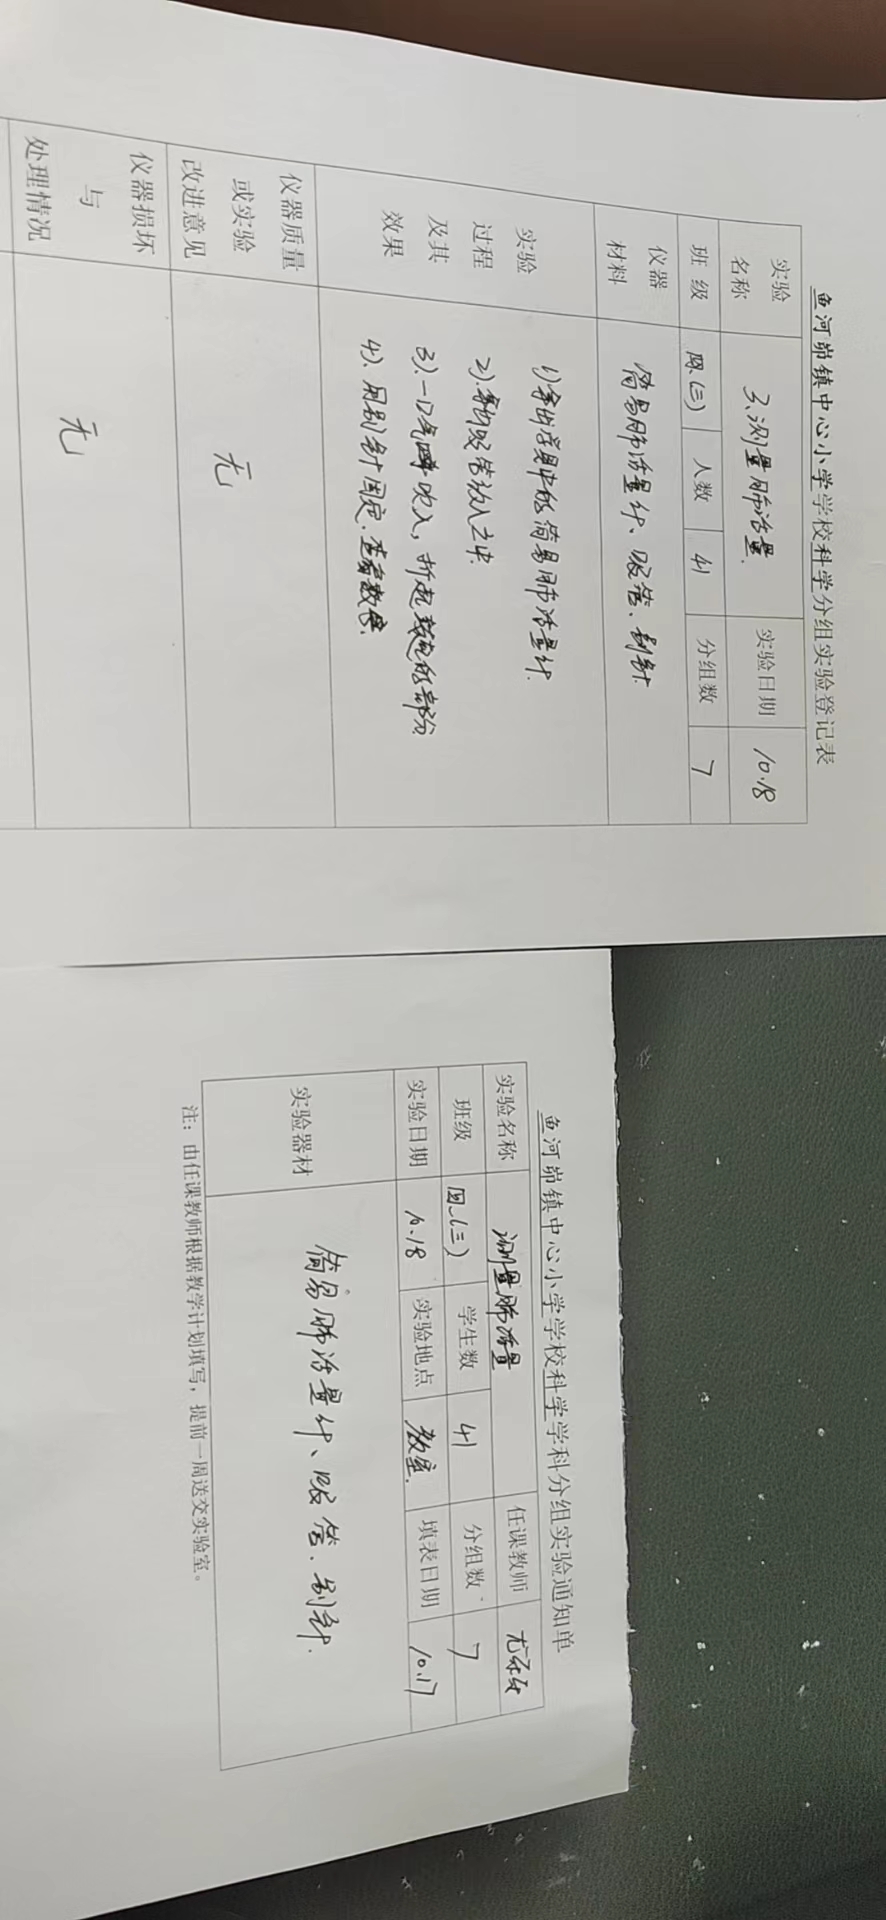 鱼河峁镇中心小学学校科学分组实验登记表
实验名称 3.测量肺活量. 实验日期 10.18
班级 四.(三) 人数 41 分组数 7
仪器材料 简易肺活量计、吸管、别针.
实验过程及其效果
1)拿出学具中的简易肺活量计.
2).拿出吸管放入之中.
3).一口气吹入,折起鼓起的部分
4).用别针固定.查看数据.
仪器质量或实验改进意见 无
仪器损坏与处理情况 无
鱼河峁镇中心小学学校科学学科分组实验通知单
实验名称 测量肺活量 任课教师
班级 四.(三) 学生数 41 分组数 7
实验日期 10.18 实验地点 教室. 填表日期 10.17
实验器材 简易肺活量计、吸管、别针.
注:由任课教师根据教学计划填写,提前一周送交实验室。